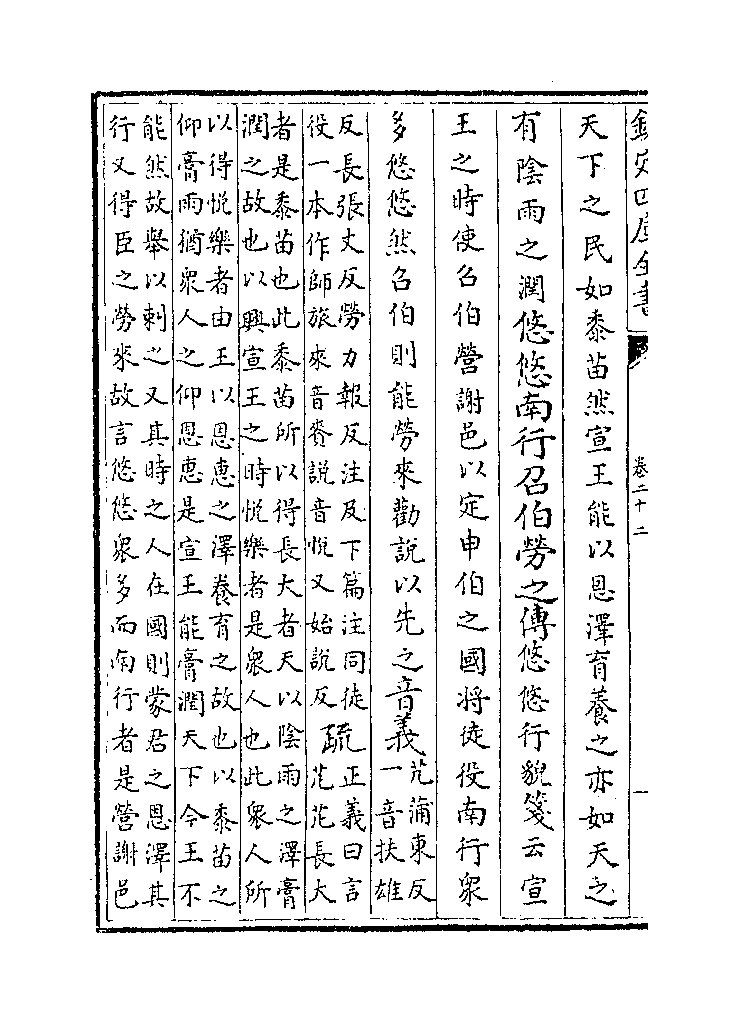 欽定四庫全書
卷二十二
天下之民如黍苗然宣王能以恩澤育養之亦如天之
有陰雨之潤悠悠南行召伯勞之傳悠悠行貌箋云宣
王之時使召伯營謝邑以定申伯之國將徒役南行衆
多悠悠然召伯則能勞來勸說以先之音義
芃蒲東反
一音扶雄
反長張丈反勞力報反注及下篇注同徒
役一本作師旅來音賚說音悅又始說反
疏
正義曰言
芃芃長大
者是黍苗也此黍苗所以得長大者天以陰雨之澤膏
潤之故也以興宣王之時悅樂者是衆人也此衆人所
以得悅樂者由王以恩惠之澤養育之故也以黍苗之
仰膏雨猶衆人之仰恩惠是宣王能膏潤天下今王不
能然故舉以刺之又其時之人在國則蒙君之恩澤其
行又得臣之勞來故言悠悠衆多而南行者是營謝邑